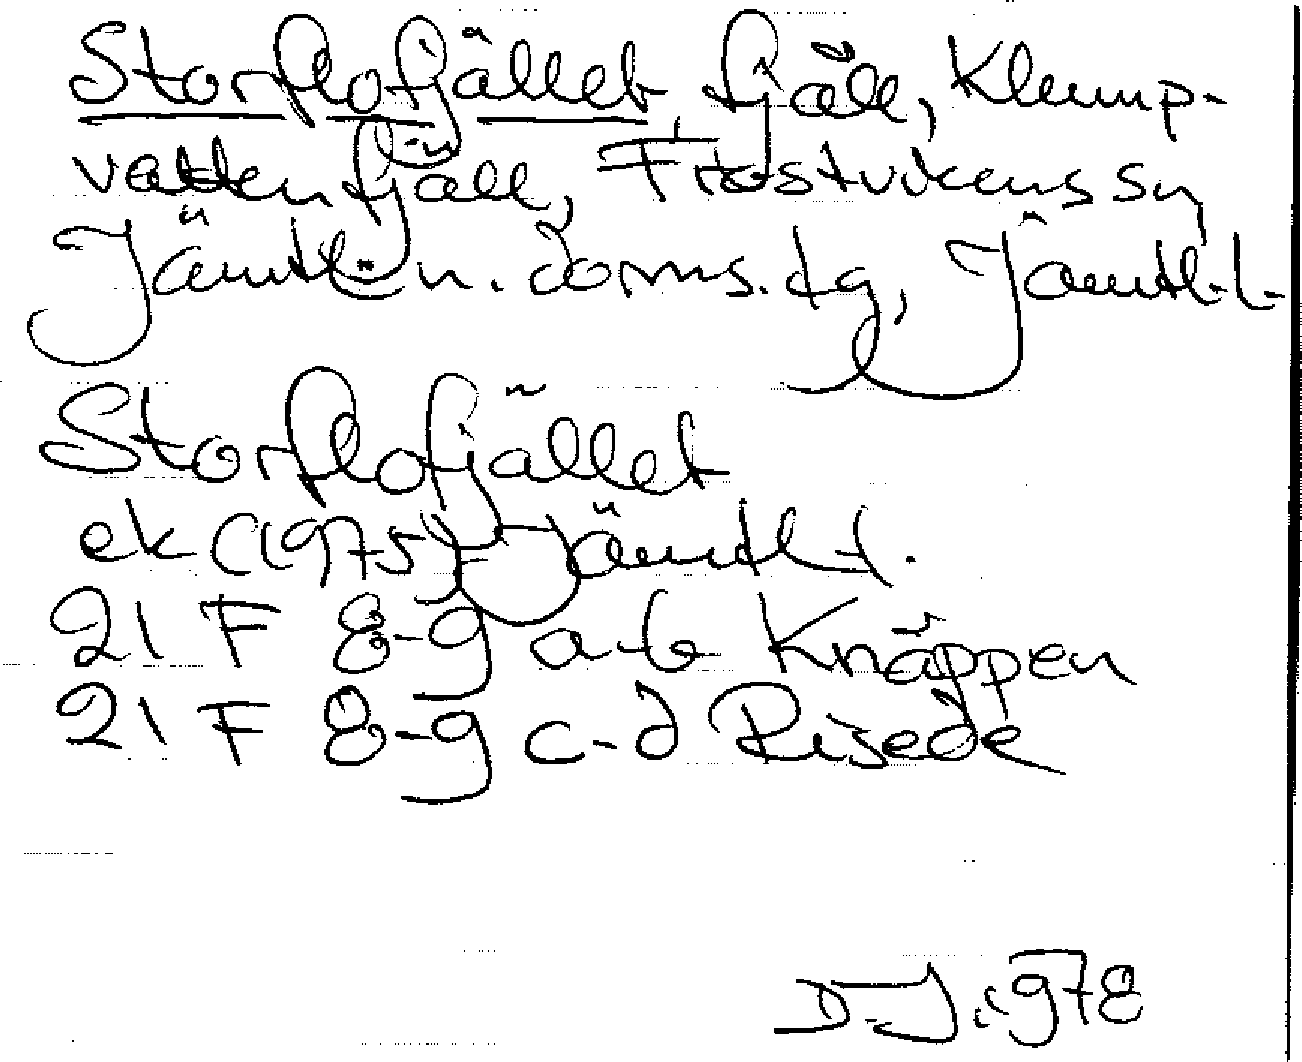 Storflofjället, fjäll, Klump-
vattenfjäll, Frostvikens sn,
Jämtl. n. doms. tg, Jämtl. l.
Storflofjället
ek (1975) Jämtl. l.
21 F 8-g a-b Knäppen
21 F 8-g c-d Risede
D.J. 1978